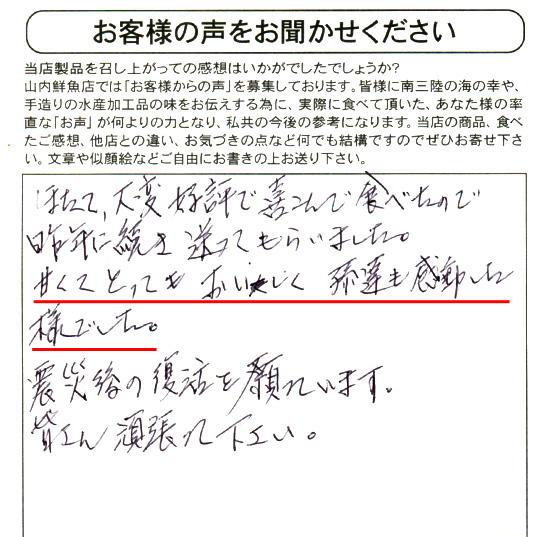 お客様の声をお聞かせください
当店製品を召し上がっての感想はいかがでしたでしょうか?
山内鮮魚店では「お客様からの声」を募集しております。皆様に南三陸の海の幸や、
手造りの水産加工品の味をお伝えする為に、実際に食べて頂いた、あなた様の率
直な「お声」が何よりの力となり、私共の今後の参考になります。当店の商品、食べ
たご感想、他店との違い、お気づきの点など何でも結構ですのでぜひお寄せ下さ
い。文章や似顔絵などご自由にお書きの上お送り下さい。
ほたて、大変好評で喜こんで食べたので
昨年に続き送ってもらいました。
甘くてとってもおいしく孫達も感動した
様でした。
震災後の復活を願っています。
皆さん頑張って下さい。